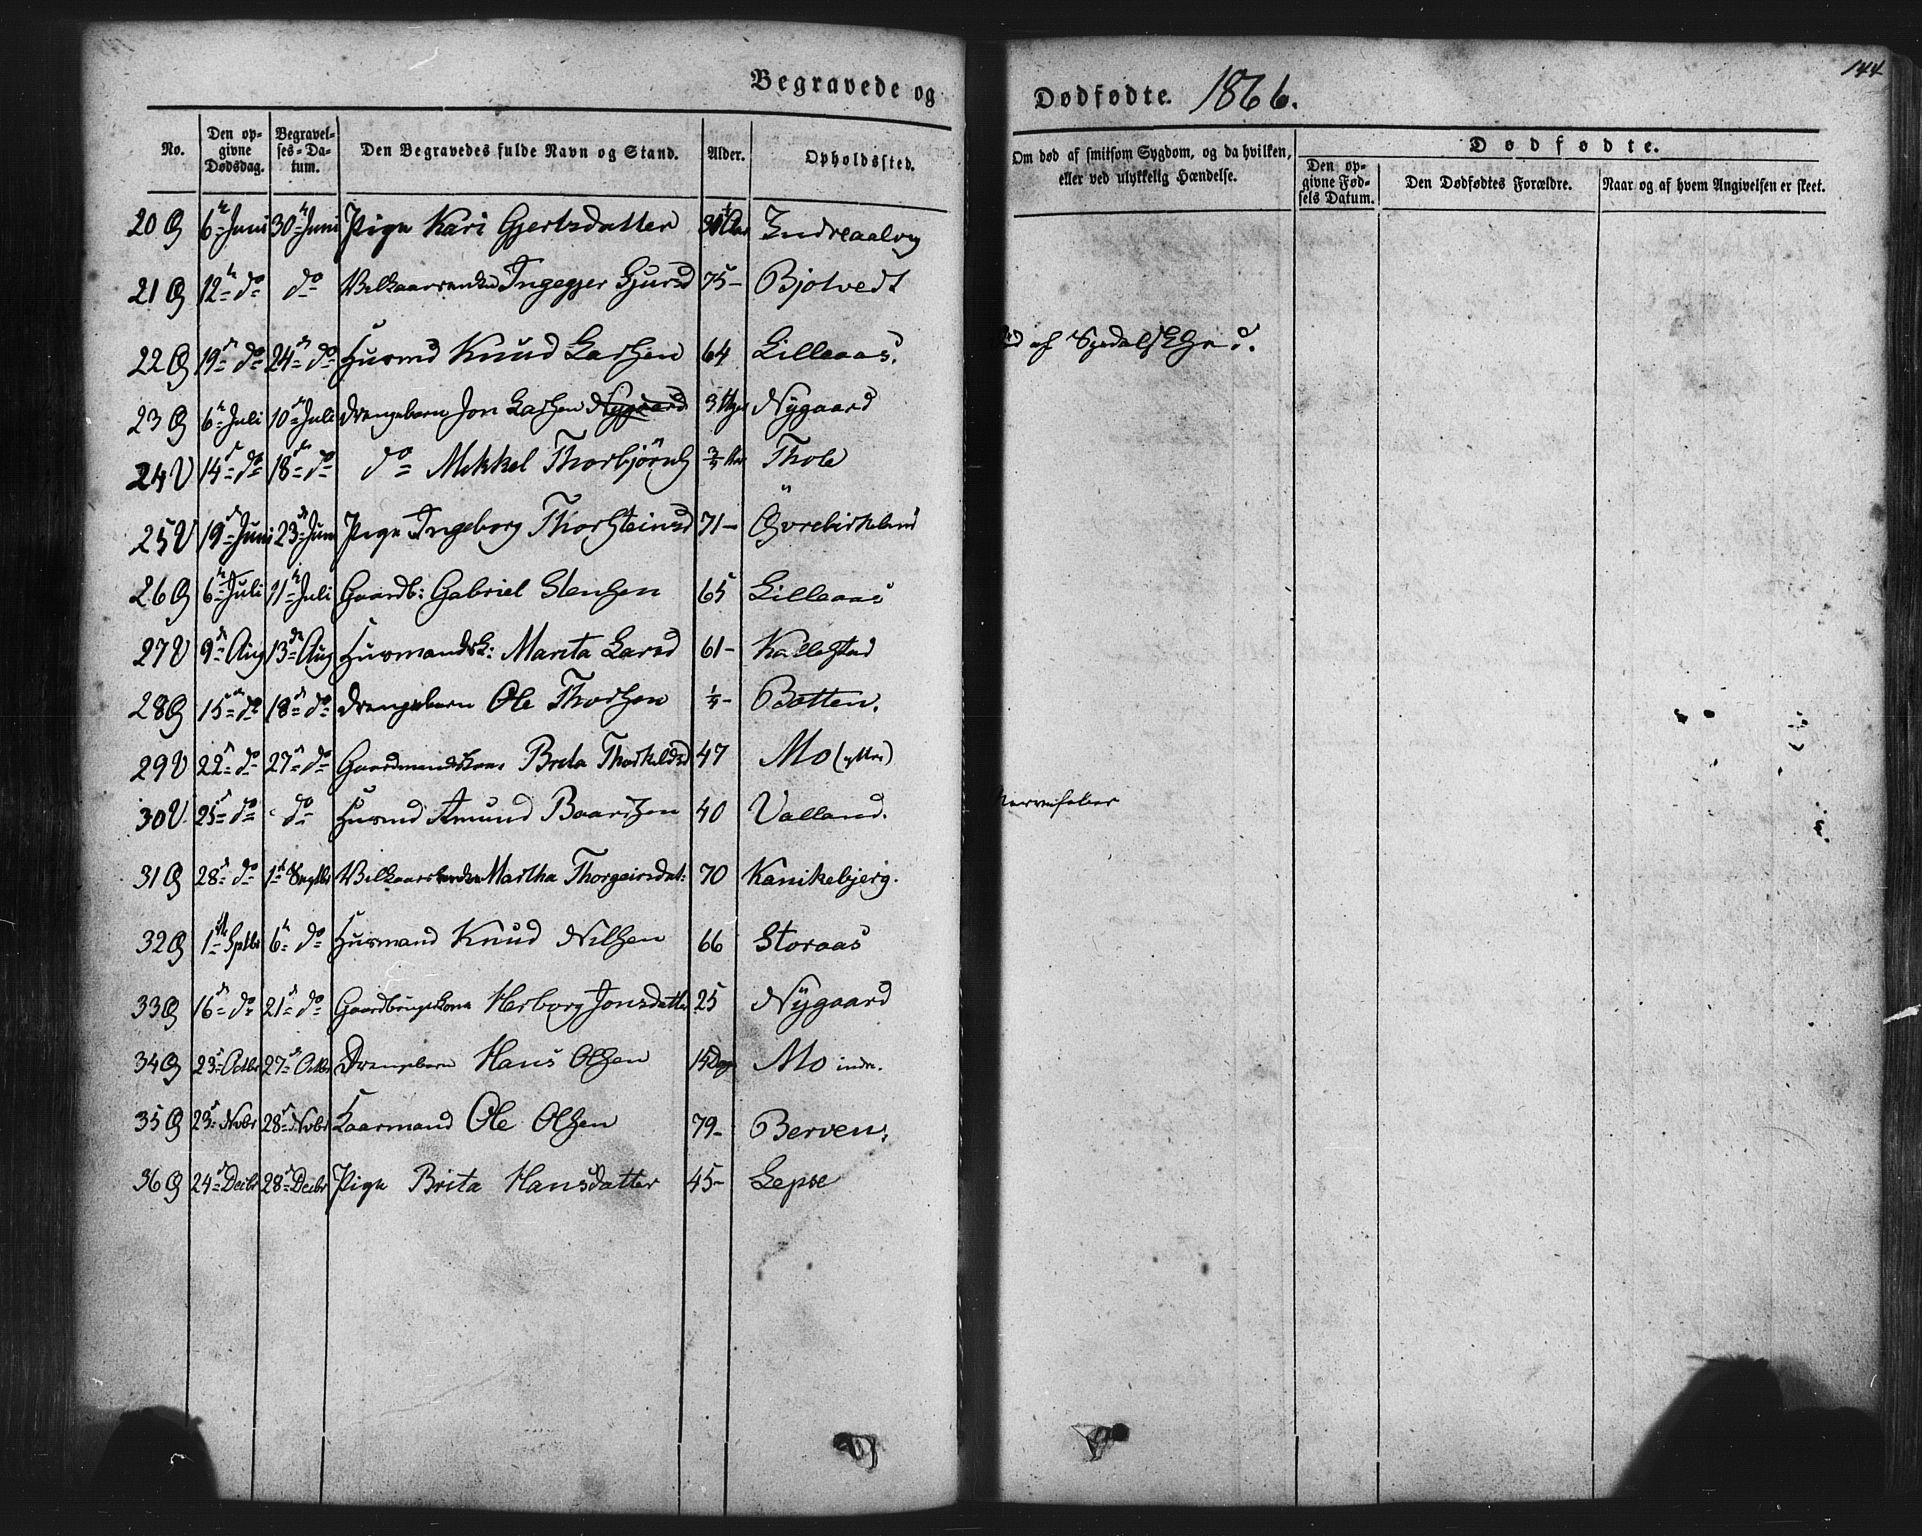 144
Begravede og Dødfødte. 1866.
No. Den opgivne Dødsdag. Begravelses-Datum. Den Begravedes fulde Navn og Stand. Alder. Opholdssted. Om død af smitsom Sygdom, og da hvilken, eller ved ulykkelig Hændelse. Dødfødte. Den opgivne Fødsels Datum. Den Dødfødtes Forældre. Naar og af hvem Angivelsen er skeet.
20 Ø 6te Juni 30te Juni Pige Kari Gjertsdatter Indreaalvig
21 Ø 12te do do Ingegjer Sjursd 75- Bjotvedt
22 Ø 19de do 24de do Husmd Knud Larssen 64 Lilleaas. af Spedalskhed.
23 Ø 6te Juli 10de Juli Drengebarn Jon Larssen Nygaard 3 Uger Nygaard
24 V 14de do 18de do do Mikkel Thorbjørns 3/4 Aar Thole
25 V 19de Juni 23de Juni Pige Ingeborg Thorsteinsd 71- Øvrebirkeland
26 Ø 6te Juli 11te Juli Gaardb: Gabriel Stenssen 65 Lilleaas
27 V 9de Aug 13de Aug Husmandsk: Marita Larsd 61- Kallestad
28 Ø 15de do 18de do Drengebarn Ole Thorssen 1/4- Botten.
29 V 22de do 27de do Gaardmandskone Brita Thorkildsd 47 Mo (yttre)
30 V. 25de do do Husmd Amund Baardsen 40 Valland. Nervefeber
31 Ø 28de do 1ste Septbr Martha Thorgeirsdat: 70 Kanikebjerg.
32 Ø 1ste Sptbr 6te do Husmand Knud Nilssen 66 Storaas
33 Ø 16de do 21de do Gaardbrugerkone Herborg Jonsdatter 25 Nygaard
34 Ø 23de Octbr 27de Octbr Drengebarn Hans Olssen 14 Dage Mo indre.
35 Ø 23de Novbr 28de Novbr Kaarmand Ole Olssen 79- Berven.
36 Ø 24de Decbr 28de Decbr Pige Brita Hansdatter 45- Lepse